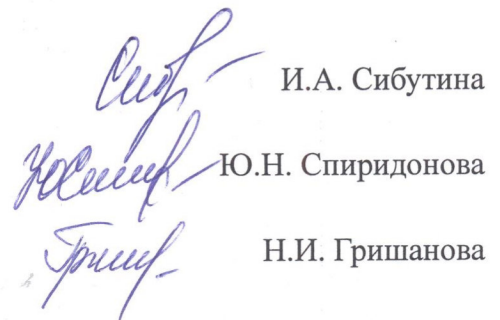 И.А. Сибутина
Ю.Н. Спиридонова
Н.И. Гришанова